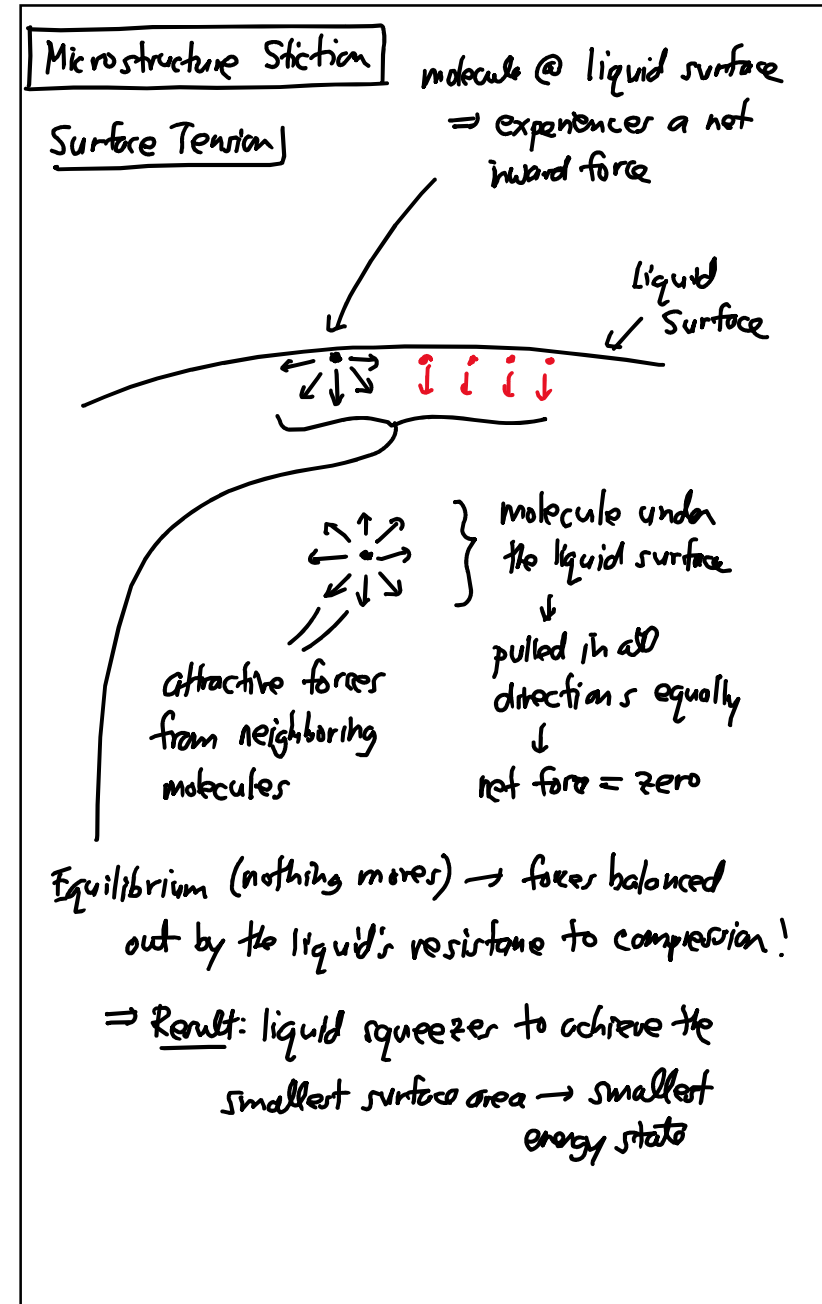 Microstructure Stiction
molecule @ liquid surface
⇒ experiences a net
inward force
Surface Tension
liquid
surface
molecule under
the liquid surface
↓
pulled in all
directions equally
↓
net force = zero
attractive forces
from neighboring
molecules
Equilibrium (nothing moves) → forces balanced
out by the liquid's resistance to compression!
⇒ Result: liquid squeezes to achieve the
smallest surface area → smallest
energy state